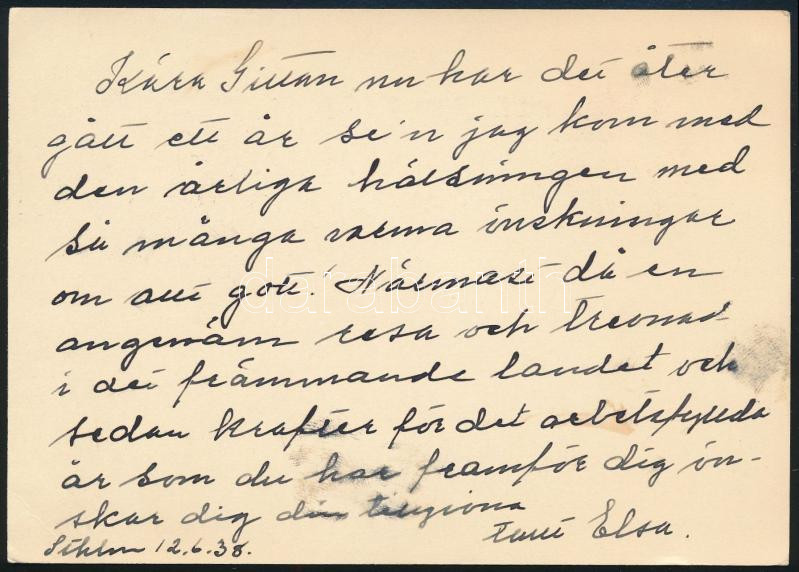 Kära Gittan nu har det åter
gått ett år se'n jag kom med
den årliga hälsningen med
så många varma önskningar
om allt gott. Närmast då en
angenäm resa och trevnad
i det främmande landet och
sedan krafter för det arbetsfyllda
år som du har framför dig ön-
skar dig din tillgivna
tant Elsa.
Sthlm 12.6.38.
darabanth